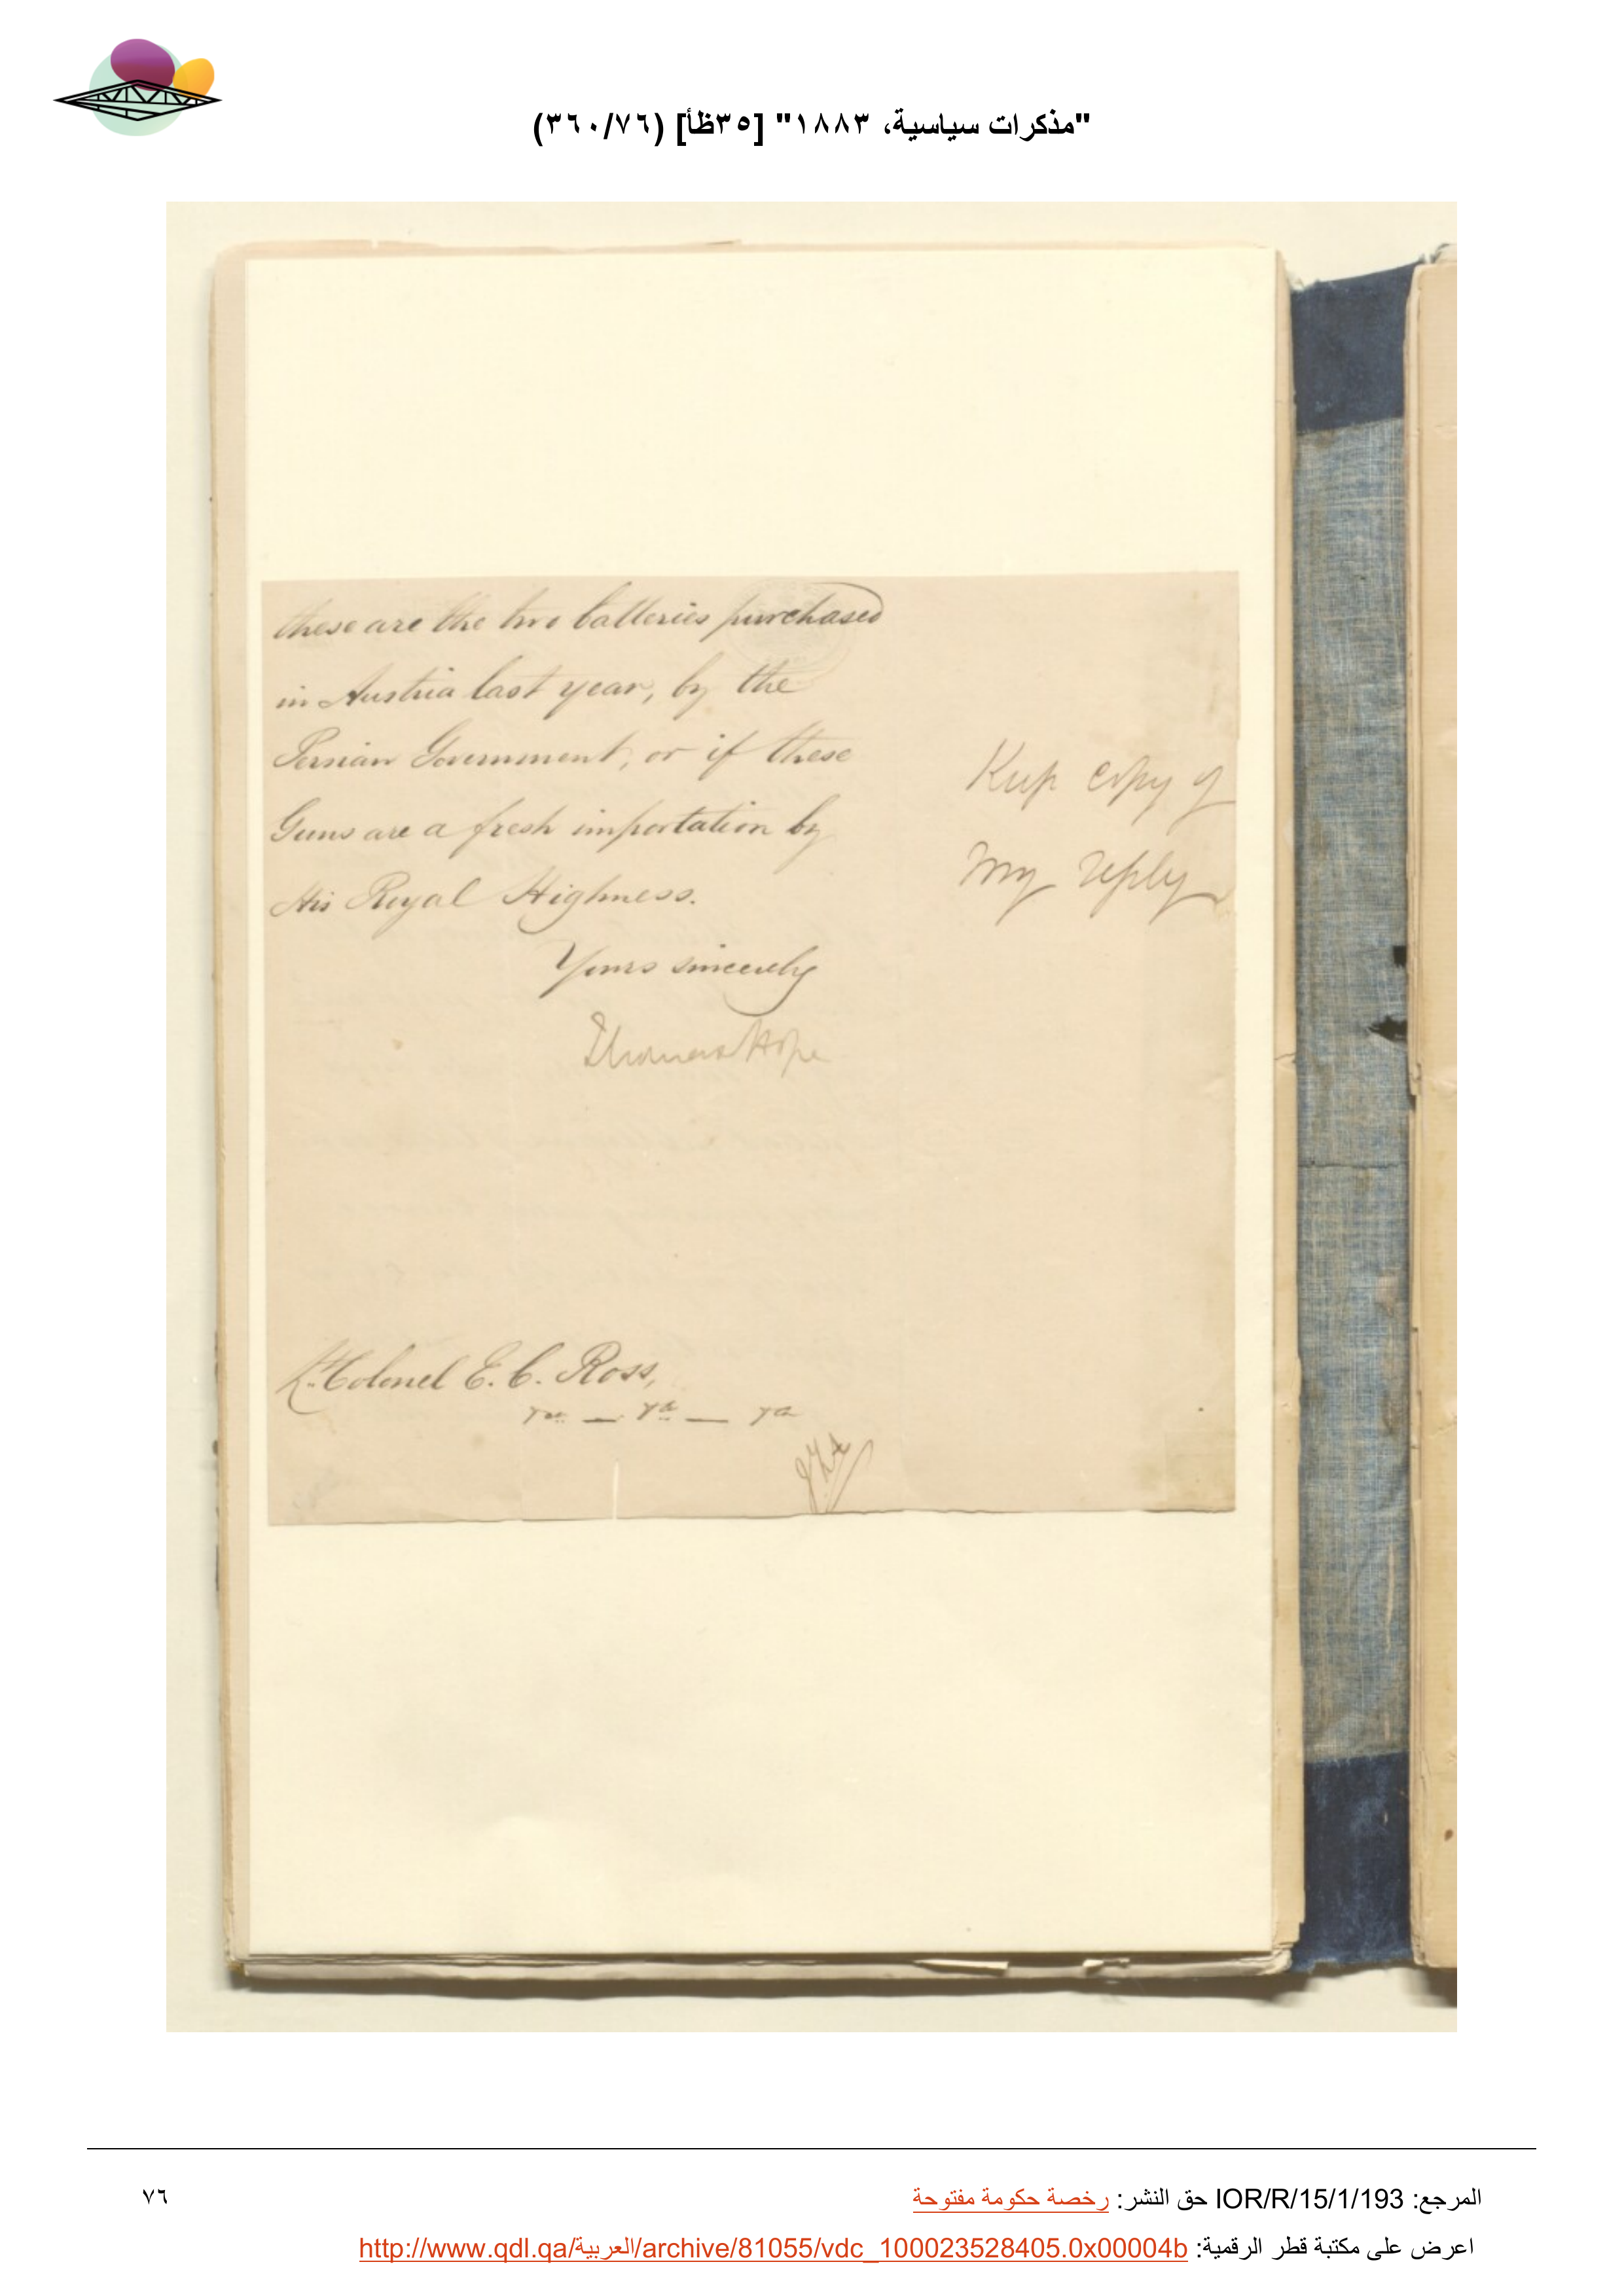 "مذكرات سياسية، ١٨٨٣" [٣٥ظأ] (٣٦٠/٧٦)
these are the two batteries purchased
in Austria last year, by the
Persian Government, or if these
Guns are a fresh importation by
His Royal Highness.
Yours sincerely
Thomas Hope
Keep copy of
my reply
Lt. Colonel E. C. Ross,
المرجع: IOR/R/15/1/193 حق النشر: رخصة حكومة مفتوحة
٧٦
اعرض على مكتبة قطر الرقمية: http://www.qdl.qa/العربية/archive/81055/vdc_100023528405.0x00004b